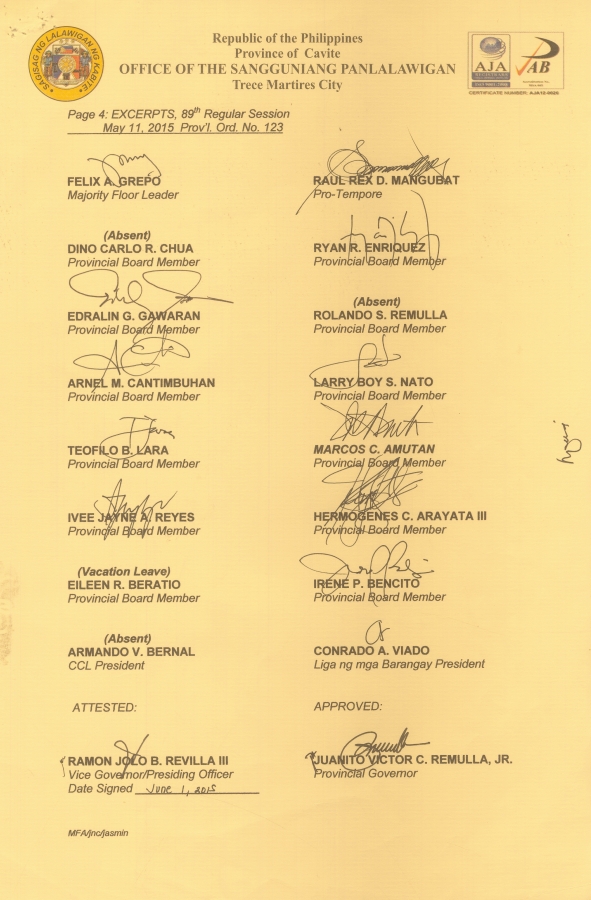 Republic of the Philippines
Province of Cavite
OFFICE OF THE SANGGUNIANG PANLALAWIGAN
Trece Martires City
SAGISAG NG LALAWIGAN NG KABITE
AJA
AB
CERTIFICATE NUMBER: AJA12-0026
Page 4: EXCERPTS, 89th Regular Session
May 11, 2015 Prov'l. Ord. No. 123
FELIX A. GREPO
Majority Floor Leader
RAUL REX D. MANGUBAT
Pro-Tempore
(Absent)
DINO CARLO R. CHUA
Provincial Board Member
RYAN R. ENRIQUEZ
Provincial Board Member
EDRALIN G. GAWARAN
Provincial Board Member
(Absent)
ROLANDO S. REMULLA
Provincial Board Member
ARNEL M. CANTIMBUHAN
Provincial Board Member
LARRY BOY S. NATO
Provincial Board Member
TEOFILO B. LARA
Provincial Board Member
MARCOS C. AMUTAN
Provincial Board Member
IVEE JAYNE A. REYES
Provincial Board Member
HERMOGENES C. ARAYATA III
Provincial Board Member
(Vacation Leave)
EILEEN R. BERATIO
Provincial Board Member
IRENE P. BENCITO
Provincial Board Member
(Absent)
ARMANDO V. BERNAL
CCL President
CONRADO A. VIADO
Liga ng mga Barangay President
ATTESTED:
APPROVED:
RAMON JOLO B. REVILLA III
Vice Governor/Presiding Officer
Date Signed June 1, 2015
JUANITO VICTOR C. REMULLA, JR.
Provincial Governor
MFA/jnc/jasmin